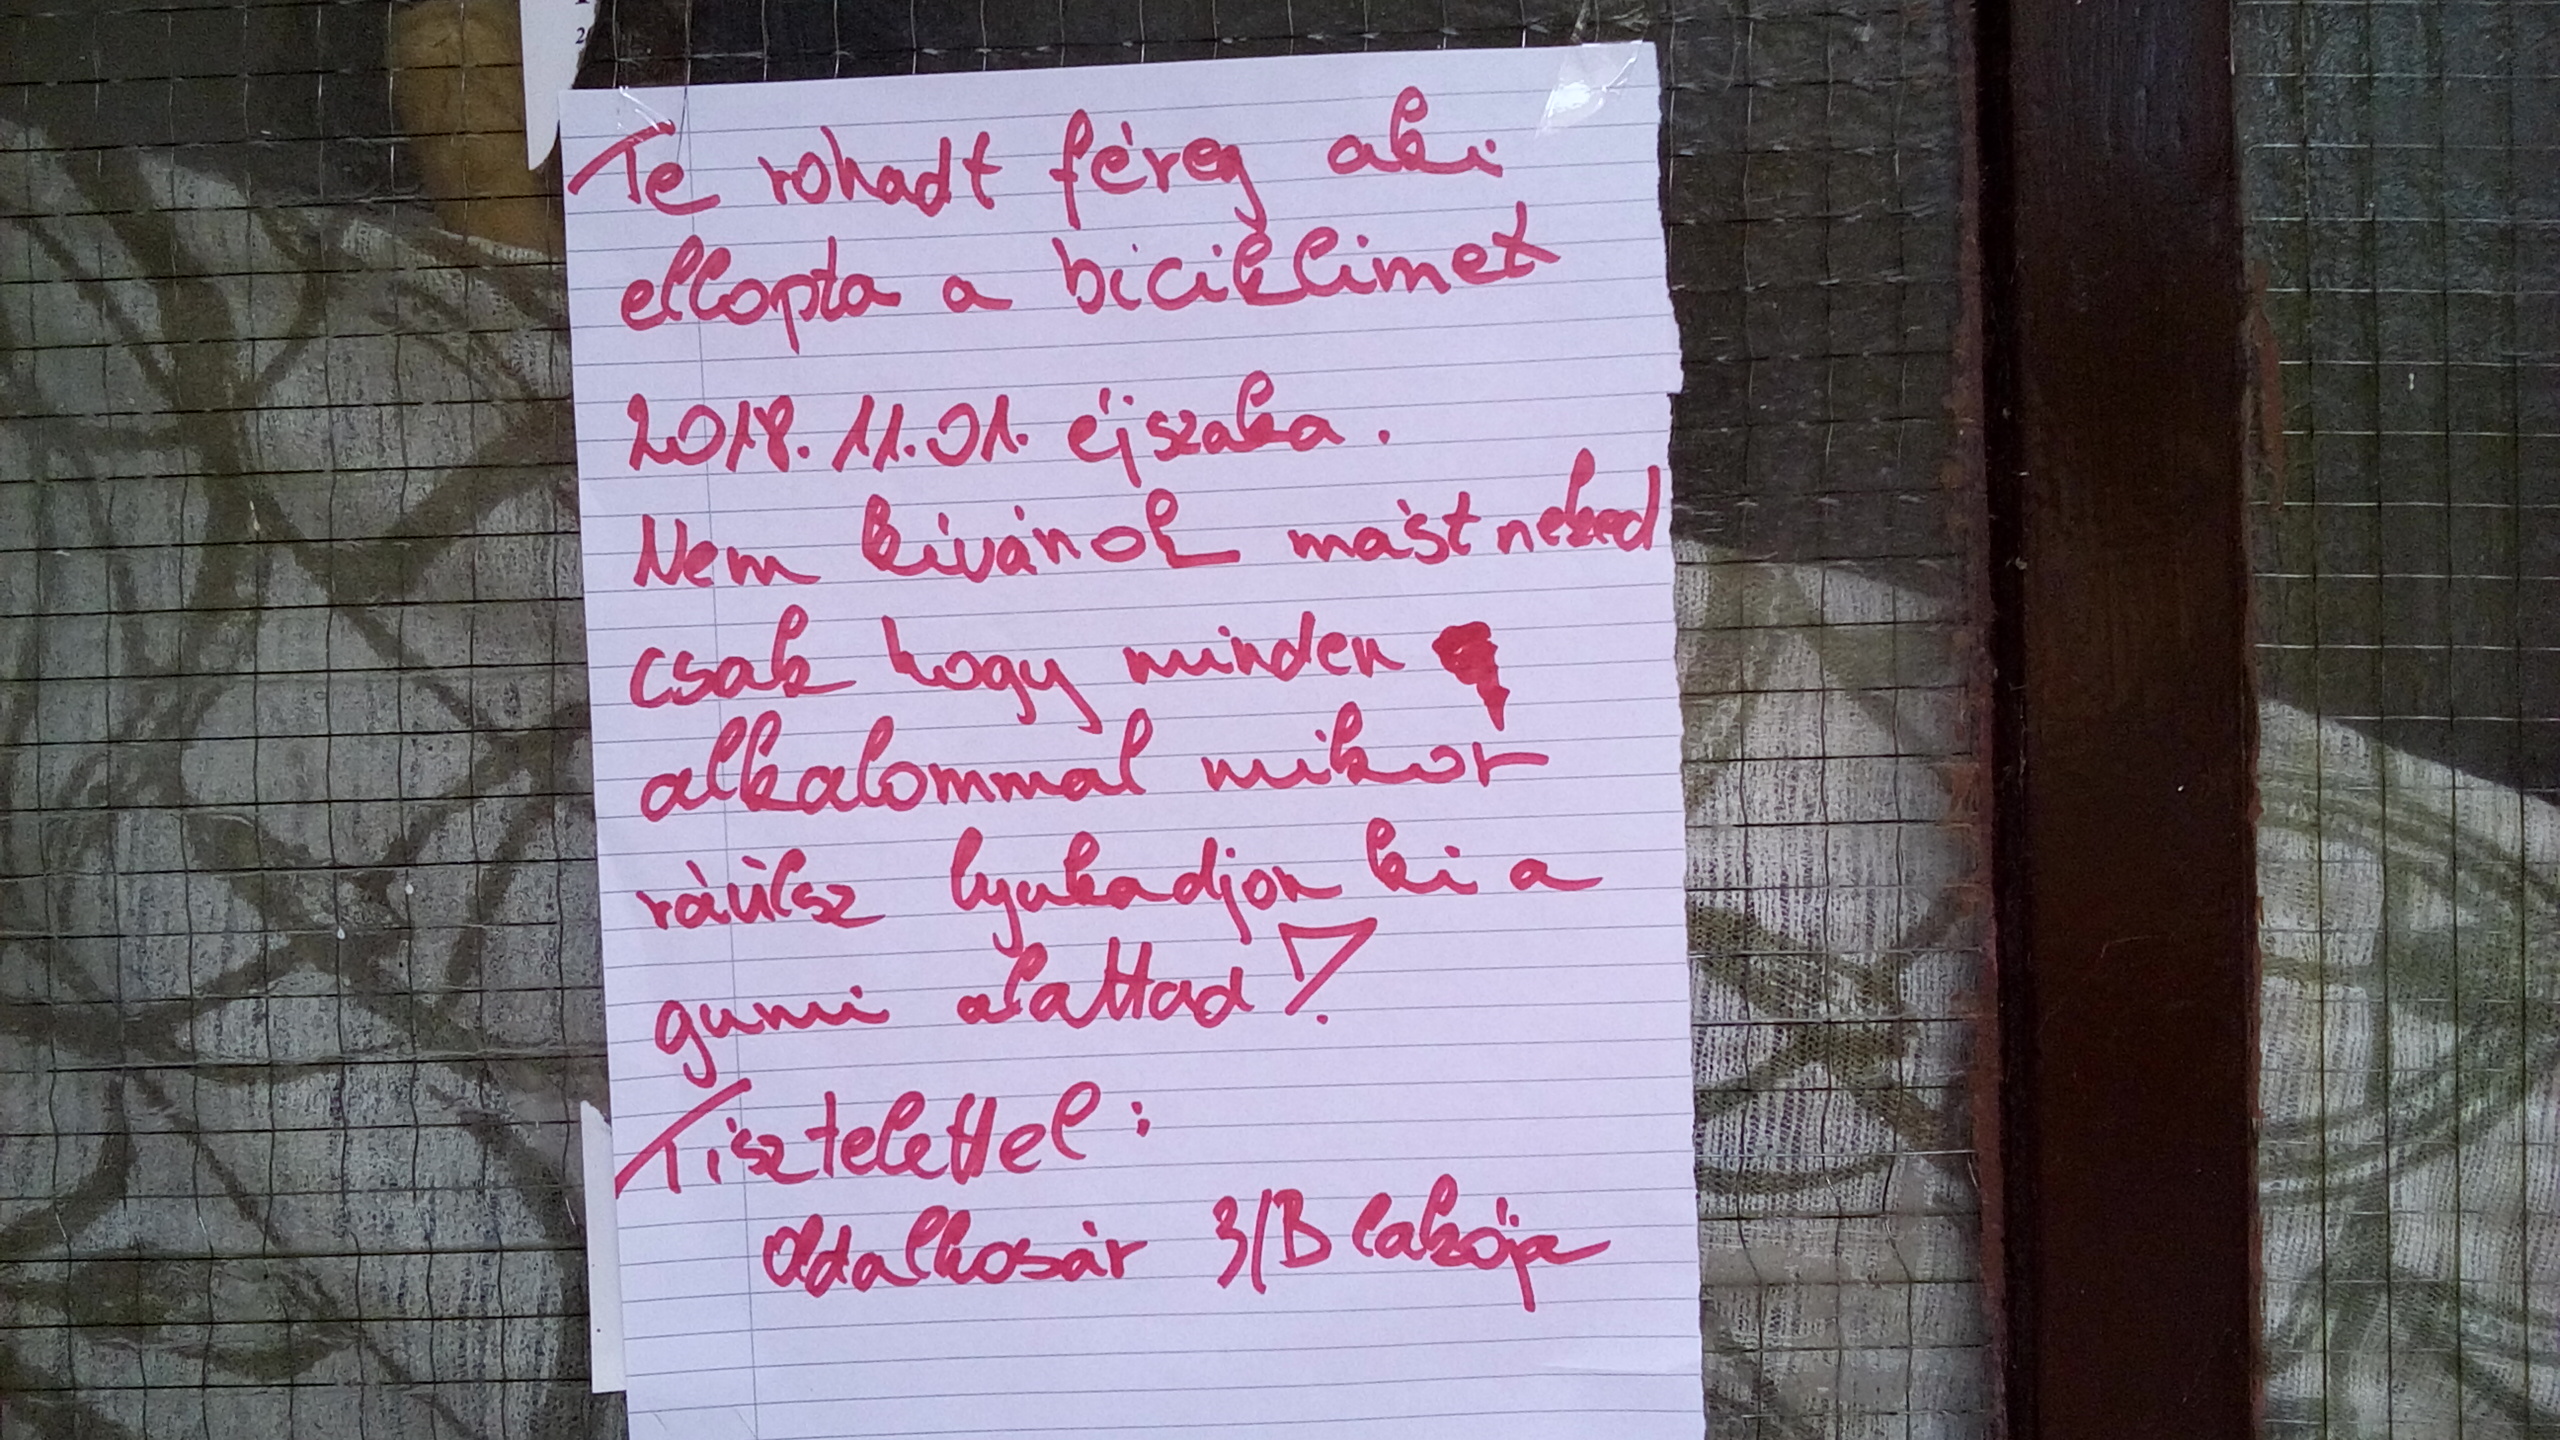 Te rohadt féreg aki
ellopta a biciklimet
2018.11.01. éjszaka.
Nem kívánok mást neked
csak hogy minden
alkalommal mikor
ráülsz lyukadjon ki a
gumi alattad!
Tisztelettel:
Oldalkosár 3/B lakója